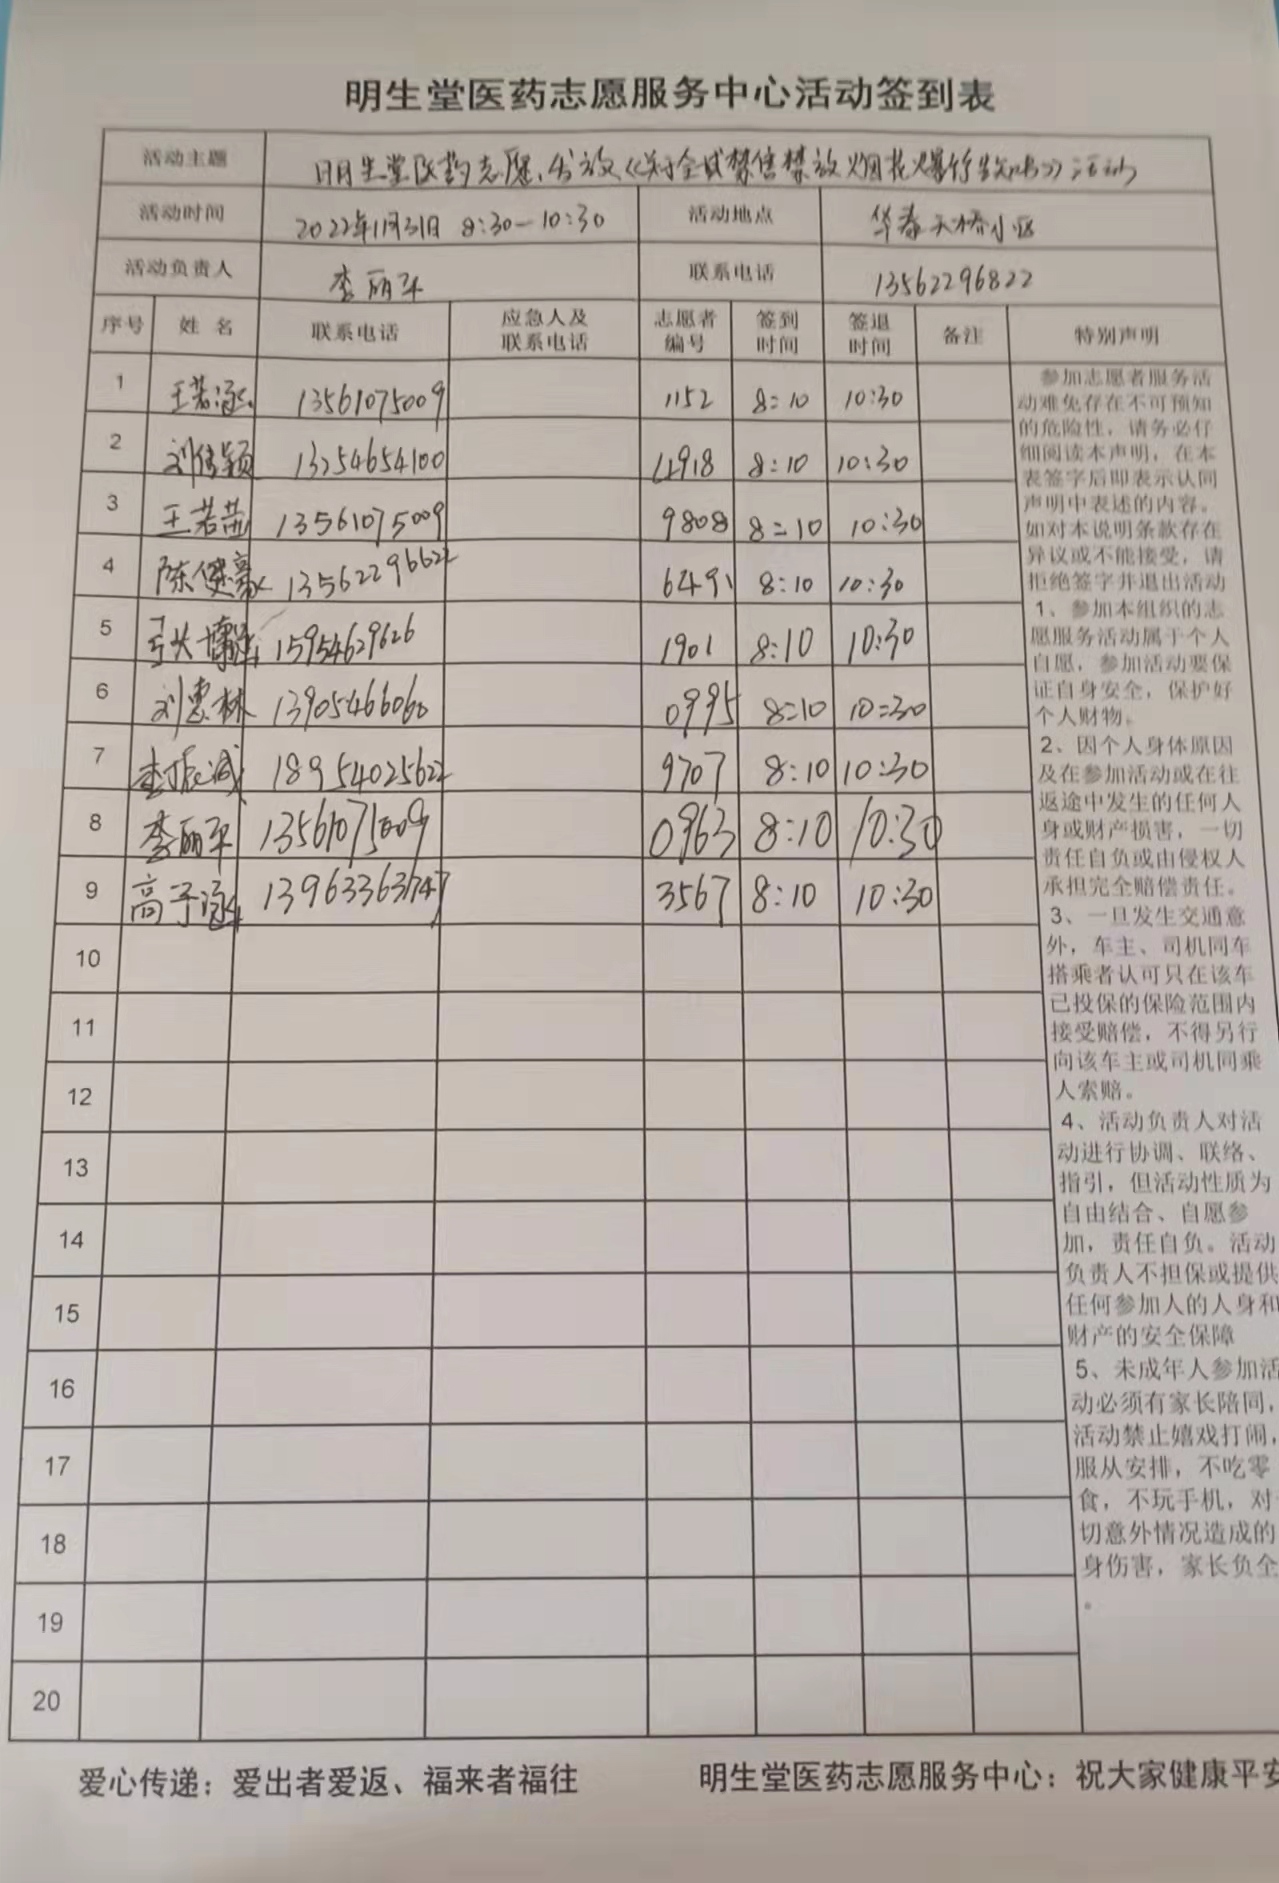 明生堂医药志愿服务中心活动签到表
活动主题 明生堂医药志愿、发放《关于全域禁售禁放烟花爆竹 》活动
活动时间 2022年1月31日 8:30—10:30 活动地点 华春天桥小区
活动负责人 李丽平 联系电话 13562296822
序号 姓名 联系电话 应急人及联系电话 志愿者编号 签到时间 签退时间 备注 特别声明
1 王若涵 13561075009 1152 8:10 10:30
2 刘倩颖 13254654100 4918 8:10 10:30
3 王若茜 13561075009 9808 8:10 10:30
4 陈健豪 13562296622 6491 8:10 10:30
5 15954629626 1901 8:10 10:30
6 刘惠林 13905466060 0995 8:10 10:30
7 李振斌 18954025622 9707 8:10 10:30
8 李丽平 13561075009 0963 8:10 10:30
9 高子涵 13963363747 3567 8:10 10:30
10
11
12
13
14
15
16
17
18
19
20
参加志愿者服务活
动难免存在不可预知
的危险性，请务必仔
细阅读本声明，在本
表签字后即表示认同
声明中表述的内容。
如对本说明条款存在
异议或不能接受，请
拒绝签字并退出活动
1、参加本组织的志
愿服务活动属于个人
自愿，参加活动要保
证自身安全，保护好
个人财物。
2、因个人身体原因
及在参加活动或在往
返途中发生的任何人
身或财产损害，一切
责任自负或由侵权人
承担完全赔偿责任。
3、一旦发生交通意
外，车主、司机同车
搭乘者认可只在该车
已投保的保险范围内
接受赔偿，不得另行
向该车主或司机同乘
人索赔。
4、活动负责人对活
动进行协调、联络、
指引，但活动性质为
自由结合、自愿参
加，责任自负。活动
负责人不担保或提供
任何参加人的人身和
财产的安全保障
5、未成年人参加活
动必须有家长陪同，
活动禁止嬉戏打闹，
服从安排，不吃零
食，不玩手机，对
切意外情况造成的
身伤害，家长负全
。
爱心传递：爱出者爱返、福来者福往 明生堂医药志愿服务中心：祝大家健康平安